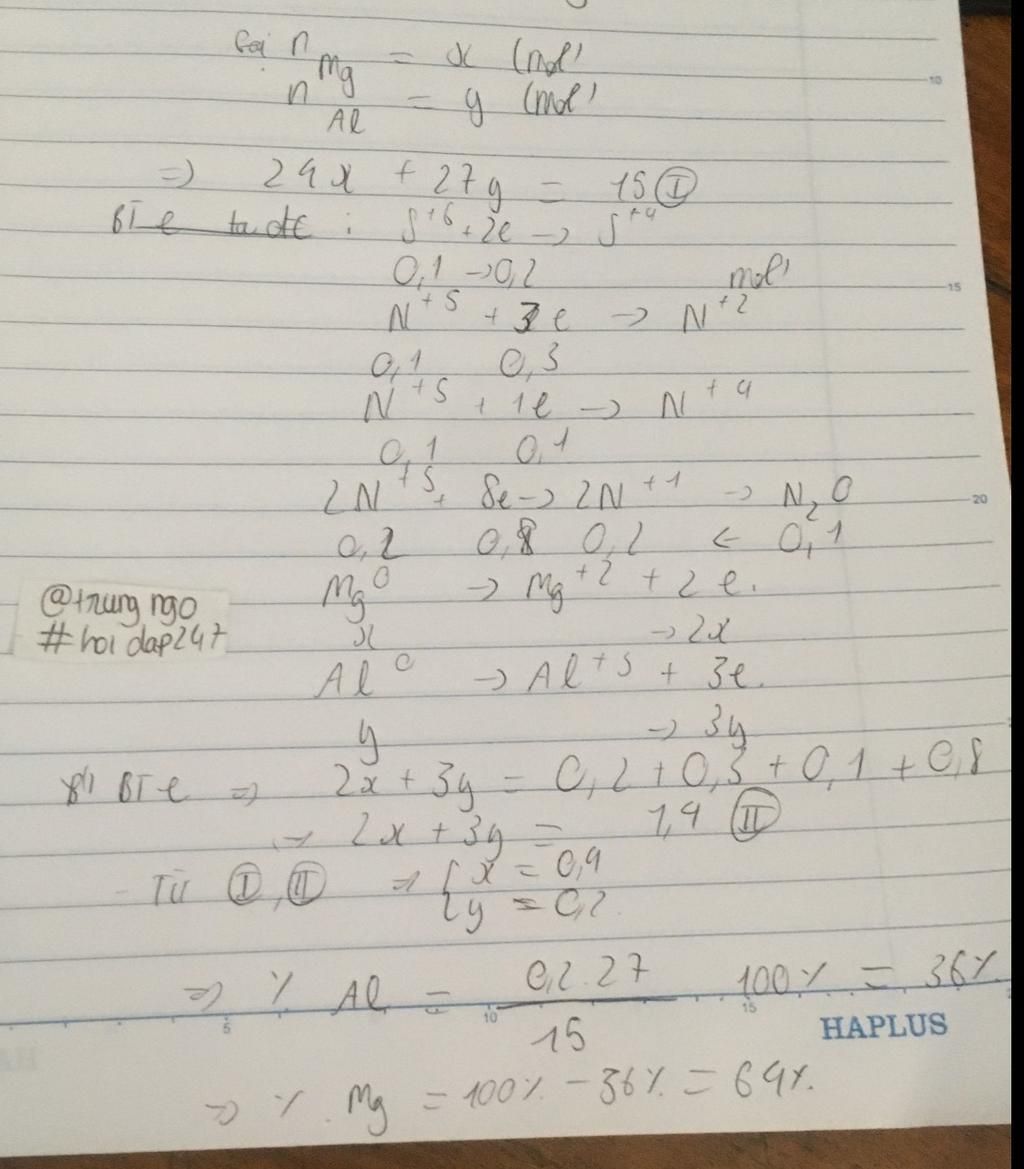 Gọi n Mg = x (mol)
n Al = y (mol)
=> 24x + 27y = 15 (I)
BT e ta đc : S+6 + 2e -> S+4
0,1 -> 0,2 mol
N+5 + 3e -> N+2
0,1 0,3
N+5 + 1e -> N+4
0,1 0,1
2N+5 + 8e -> 2N+1 -> N2O
0,2 0,8 0,2 <- 0,1
Mg0 -> Mg+2 + 2e.
x -> 2x
@trung ngo
#hoidap247
Al0 -> Al+3 + 3e.
y -> 3y
BT e => 2x + 3y = 0,2 + 0,3 + 0,1 + 0,8
-> 2x + 3y = 1,4 (II)
- Từ (I), (II) => { x = 0,4
{ y = 0,2
=> % Al = 0,2.27 / 15 100% = 36%
HAPLUS
=> % Mg = 100% - 36% = 64%.